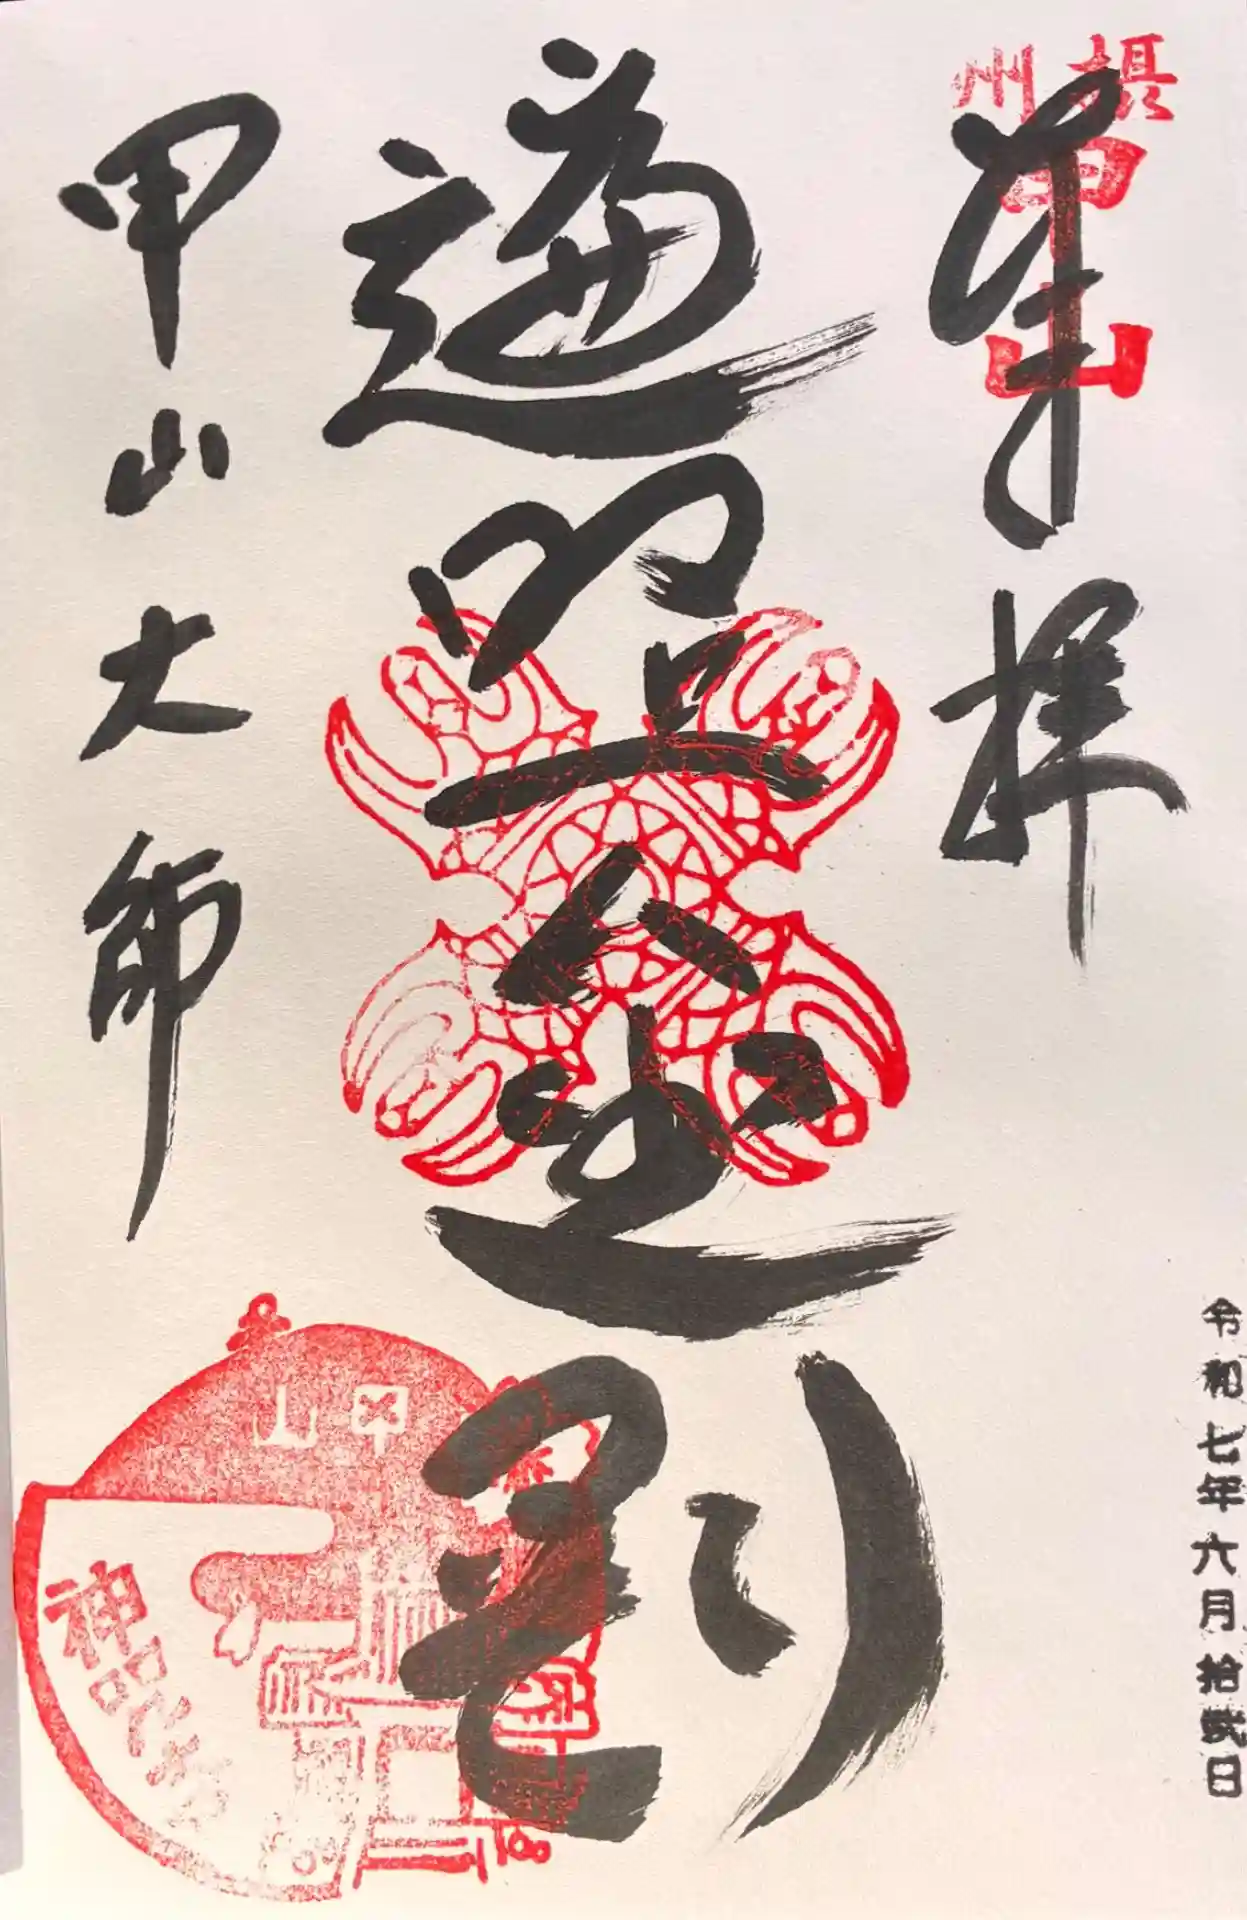 摂州
甲山
奉拝
遍照金剛
甲山大師
甲山
神呪寺
令和七年六月拾弐日